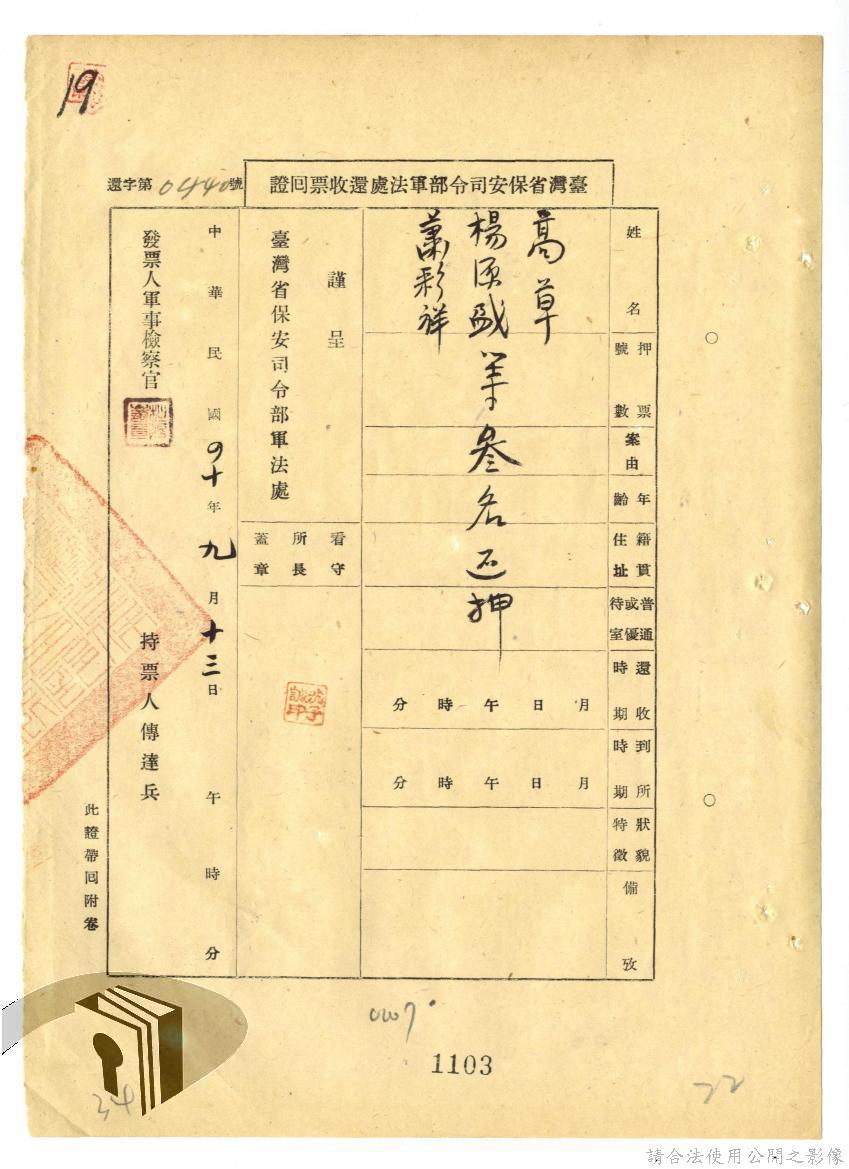 19
臺灣省保安司令部軍法處還收票囘證
還字第0440號
姓名
押票號數
案由
年齡
籍貫住址
普通或優待室
還收時期
到所時期
狀貌特徵
備攷
高草
楊源盛
蕭彩祥
等叁名還押
月日午時分
月日午時分
謹呈
臺灣省保安司令部軍法處
看守所長蓋章
中華民國四十年九月十三日午時分
發票人軍事檢察官
持票人傳達兵
此證帶囘附卷
1103
34
22
請合法使用公開之影像